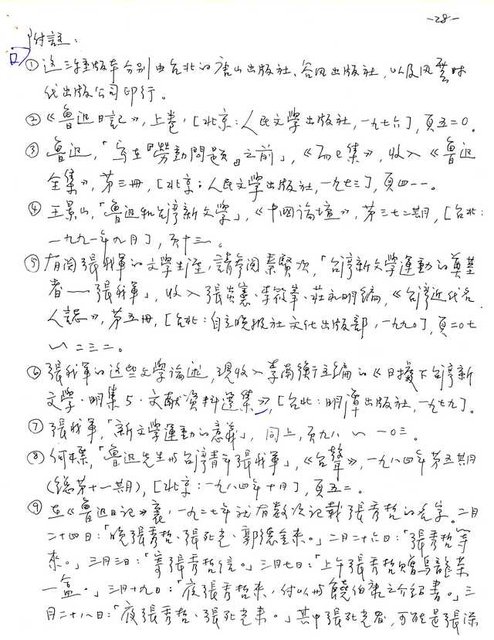 -28-
附註：
①這三種版本分別由台北的唐山出版社、谷風出版社，以及風雲時
代出版公司印行。
②《魯迅日記》，上卷，[北京：人民文學出版社，一九七六]，頁五五〇。
③魯迅，「寫在『勞動問題』之前」，《而已集》，收入《魯迅
全集》，第三冊，[北京：人民文學出版社，一九七三]，頁四一一。
④王景山，「魯迅和台灣新文學」，《中國論壇》，第三七二期，[台北：
一九九一年九月]，頁十三。
⑤有關張我軍的文學生涯，請參閱秦賢次，「台灣新文學運動的奠基
者——張我軍」，收入張炎憲、李筱峯、莊永明編，《台灣近代名
人誌》，第五冊，[台北：自立晚報社文化出版部，一九九〇]，頁二〇七
～二三二。
⑥張我軍的這些文學論述，現收入李南衡主編的《日據下台灣新
文學．明集5．文獻資料選集》，[台北：明潭出版社，一九七九]。
⑦張我軍，「新文學運動的意義」，同上，頁九八～一〇三。
⑧何標，「魯迅先生與台灣青年張我軍」，《台聲》，一九八四年第五期
(總第十一期)，[北京：一九八四年十月]，頁五二。
⑨在《魯迅日記》裏，一九二七年就有數次記載張秀哲的名字。二月
二十四日：「晚張秀哲、張死光、郭德金來。」二月二十六日：「張秀哲等
來。」三月三日：「寄張秀哲信。」三月七日：「上午張秀哲贈烏龍茶
一盒。」三月十九日：「夜張秀哲來，付以與饒伯康之介紹書。」三
月二十八日：「夜張秀哲、張死光來。」其中張死光者，可能是張深